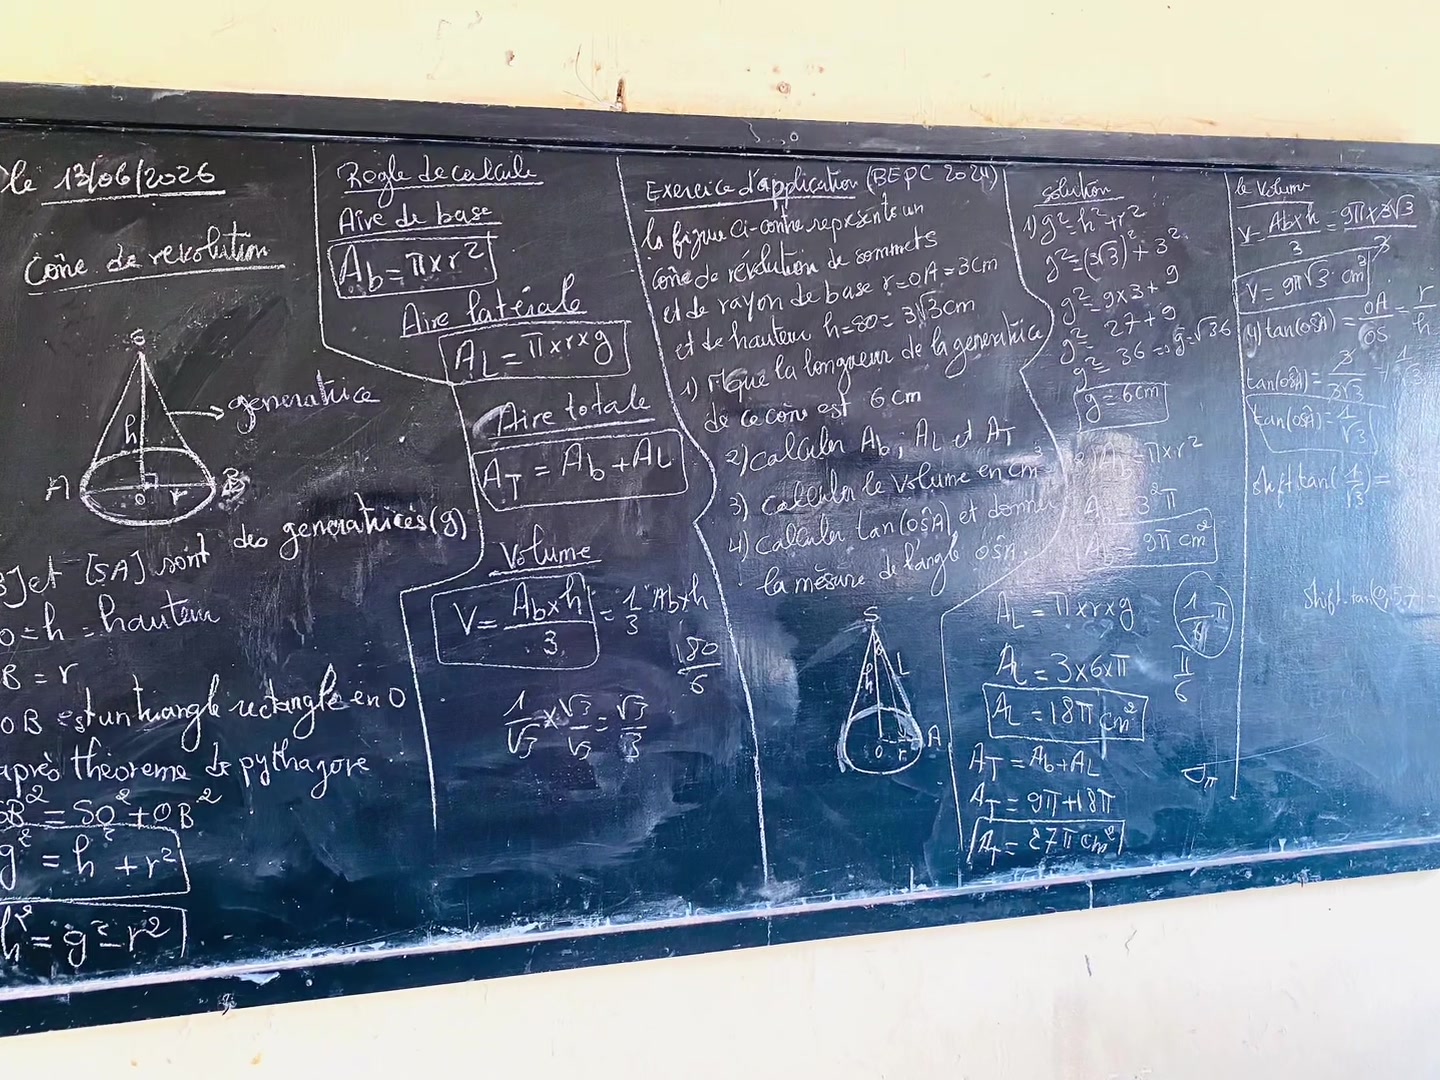 le 13/06/2026
Cône de revolution
S
generatrice
h
A
B
O
r
]et [SA] sont des generatrices(g)
O=h = hauteur
B = r
OB est un triangle rectangle en O
après théoreme de pythagore
SB² = SO² + OB²
g² = h² + r²
h² = g² - r²
Regle de calcule
Aire de base
Ab = π×r²
Aire latérale
AL = π×r×g
Aire totale
AT = Ab + AL
Volume
V = Ab×h/3 = 1/3 Ab×h
180/6
1/√3 × √3/√3 = √3/3
Exercice d'application (BEPC 2024)
la figure ci-contre represente un
cône de révolution de sommets
et de rayon de base r=OA=3cm
et de hauteur h=SO= 3√3cm
1) Mque la longueur de la generatrice
de ce cône est 6cm
2) calculer Ab ; AL et AT
3) Calculer le volume en cm³
4) Calculer tan(OŜA) et donner
la mesure de l'angle OŜA.
S
h
L
O
r
A
solution
1) g² = h² + r²
g² = (3√3)² + 3²
g² = 9×3 + 9
g² = 27+9
g² = 36 => g=√36
g = 6cm
Ab = π×r²
A = 3²π
Ab = 9π cm²
AL = π×r×g
AL = 3×6×π
AL = 18π cm²
AT = Ab+AL
AT = 9π+18π
AT = 27π cm²
π/6
le Volume
V = Ab×h/3 = 9π×3√3/3
V = 9π√3 cm³
4) tan(OŜA) = OA/OS = r/h
tan(OŜA) = 3/3√3
tan(OŜA) = 1/√3
shift tan(1/√3) =
shift tan(0,57